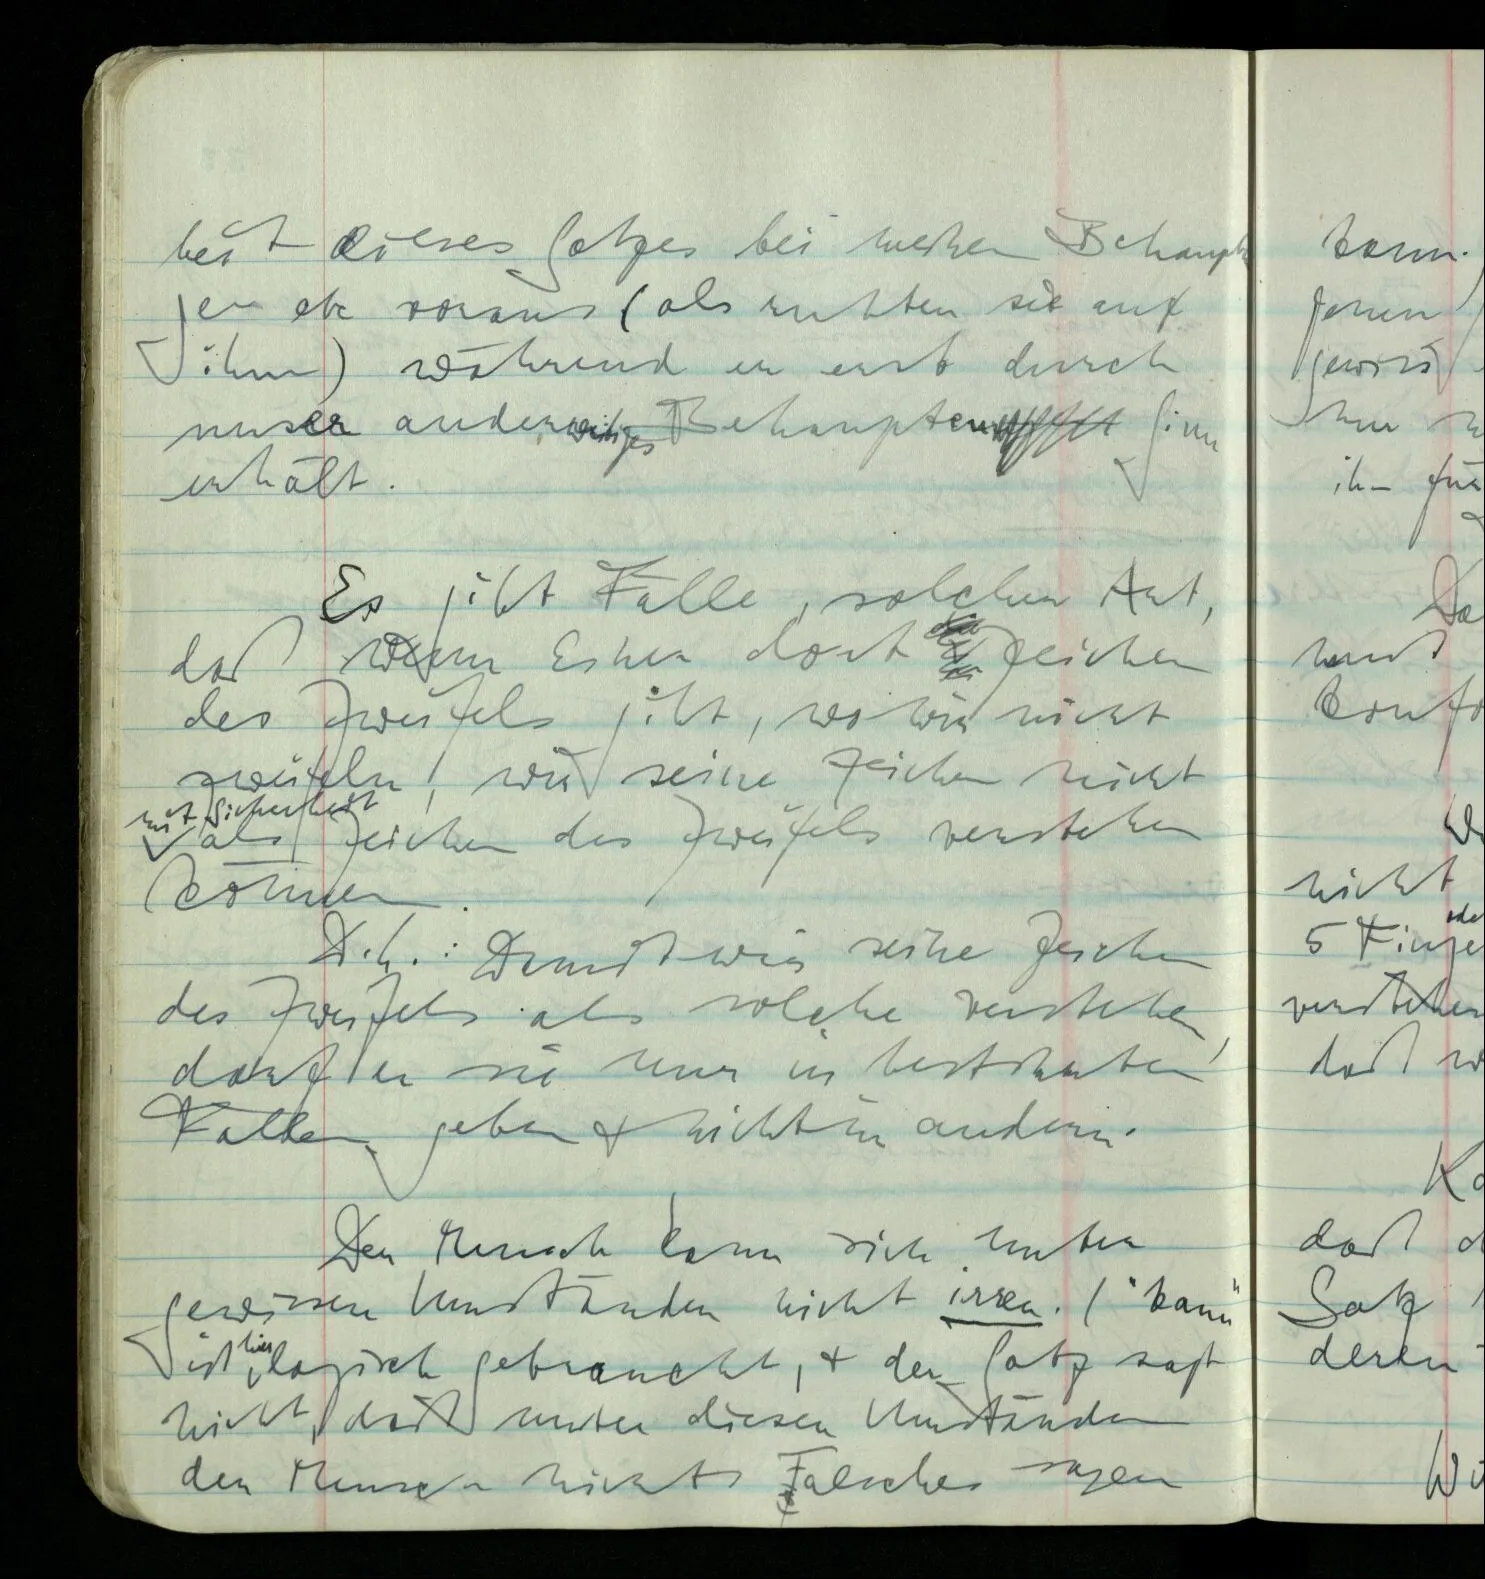 heit dieses Satzes bei meinen Behaupt
gen etc voraus (als ruhten sie auf
ihm) während er erst durch
unser anderweitiges Behaupten Sinn
erhält.
Es gibt Fälle, solcher Art,
daß wenn Einer dort Zeichen
des Zweifels gibt, wo wir nicht
zweifeln, wir seine Zeichen nicht
mit Sicherheit
als Zeichen des Zweifels verstehen
können.
D.h.: Damit wir seine Zeichen
des Zweifels als solche verstehen,
darf er sie nur in bestimmten
Fällen geben & nicht in andern.
Der Mensch kann sich unter
gewissen Umständen nicht irren. ("kann"
ist hier logisch gebraucht, & der Satz sagt
nicht, daß unter diesen Umständen
der Mensch nichts Falsches sagen
kann.
gewiss
ihm für
nicht
5 Finger
oder
verstehen
daß w
daß d
Satz
deren